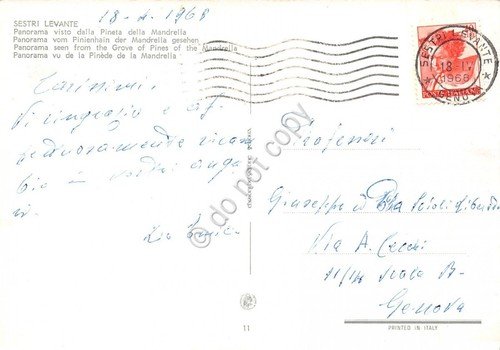 18-4-1968
SESTRI LEVANTE
Panorama visto dalla Pineta della Mandrella
Panorama vom Pinienhain der Mandrella gesehen
Panorama seen from the Grove of Pines of the Mandrella
Panorama vu de la Pinède de la Mandrella
SESTRI LEVANTE
18 IV
1968
Carissimi,
Vi ringrazio e af-
fettuosamente ricam-
bio i vostri augu-
ri.
do not copy
Giuseppe
Via A. Cecchi
11/14 Scala B-
Genova
11
PRINTED IN ITALY